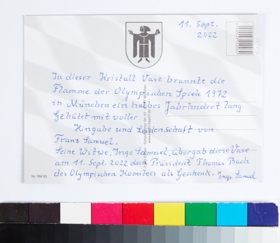 11. Sept.
2022
In dieser Kristall Vase brannte die
Flamme der Olympischen Spiele 1972
in München ein halbes Jahrhundert lang
Gehütet mit voller
Hingabe und Leidenschaft von
Franz Samuel.
Seine Witwe, Inge Samuel, übergab diese Vase
am 11. Sept. 2022 dem Präsident Thomas Bach
des Olympischen Komitees als Geschenk. Inge Samuel